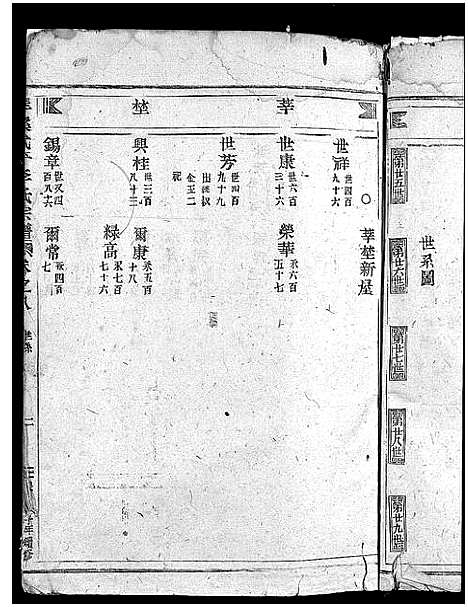 世系圖
第廿五世
第廿六世
第廿七世
第廿八世
第廿九世
莘塋
莘塋新屋
世祥 世四百九十六
世康 世六百三十六
榮華 永六百五十七
世芳 世四百九十九 出繼叔金玉二祀
興桂 世三百八十三
爾康 永五百十八
綠高 永七百七十六
錫章 世又四百八六
爾常 永四百七
宗譜
卷之八
世系